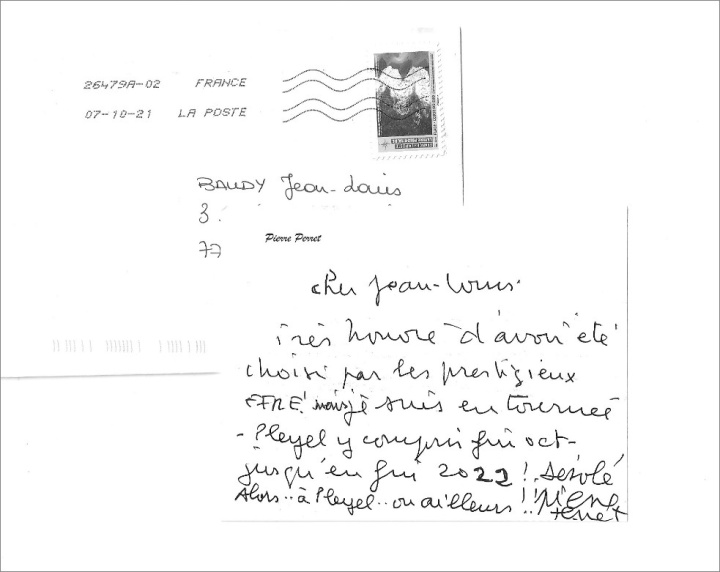 26479A-02 FRANCE
07-10-21 LA POSTE
BAUDY Jean-Louis
3.
77
Pierre Perret
cher Jean-Louis
Très honoré d'avoir été
choisi par les prestigieux
mais je suis en tournée
- Pleyel y compris fin oct-
jusqu'en fin 2022 ! Désolé
Alors.. à Pleyel.. ou ailleurs !! Pierre
Perret